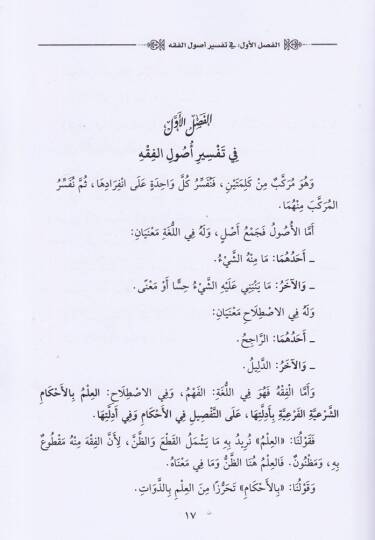 الفصل الأول: في تفسير أصول الفقه
الفَصْلُ الأَوَّلُ
فِي تَفْسِيرِ أُصُولِ الفِقْهِ
وَهُوَ مُرَكَّبٌ مِنْ كَلِمَتَيْنِ، فَنُفَسِّرُ كُلَّ وَاحِدَةٍ عَلَى انْفِرَادِهَا، ثُمَّ نُفَسِّرُ
المُرَكَّبَ مِنْهُمَا.
أَمَّا الأُصُولُ فَجَمْعُ أَصْلٍ، وَلَهُ فِي اللُّغَةِ مَعْنَيَانِ:
ـ أَحَدُهُمَا: مَا مِنْهُ الشَّيْءُ.
ـ وَالآخَرُ: مَا يَنْبَنِي عَلَيْهِ الشَّيْءُ حِسًّا أَوْ مَعْنًى.
وَلَهُ فِي الاصْطِلَاحِ مَعْنَيَانِ:
ـ أَحَدُهُمَا: الرَّاجِحُ.
ـ وَالآخَرُ: الدَّلِيلُ.
وَأَمَّا الفِقْهُ فَهُوَ فِي اللُّغَةِ: الفَهْمُ، وَفِي الاصْطِلَاحِ: العِلْمُ بِالأَحْكَامِ
الشَّرْعِيَّةِ الفَرْعِيَّةِ بِأَدِلَّتِهَا، عَلَى التَّفْصِيلِ فِي الأَحْكَامِ وَفِي أَدِلَّتِهَا.
فَقَوْلُنَا: «العِلْمُ» نُرِيدُ بِهِ مَا يَشْمَلُ القَطْعَ وَالظَّنَّ، لِأَنَّ الفِقْهَ مِنْهُ مَقْطُوعٌ
بِهِ، وَمَظْنُونٌ. فَالعِلْمُ هُنَا الظَّنُّ وَمَا فِي مَعْنَاهُ.
وَقَوْلُنَا: «بِالأَحْكَامِ» تَحَرُّزًا مِنَ العِلْمِ بِالذَّوَاتِ.
١٧